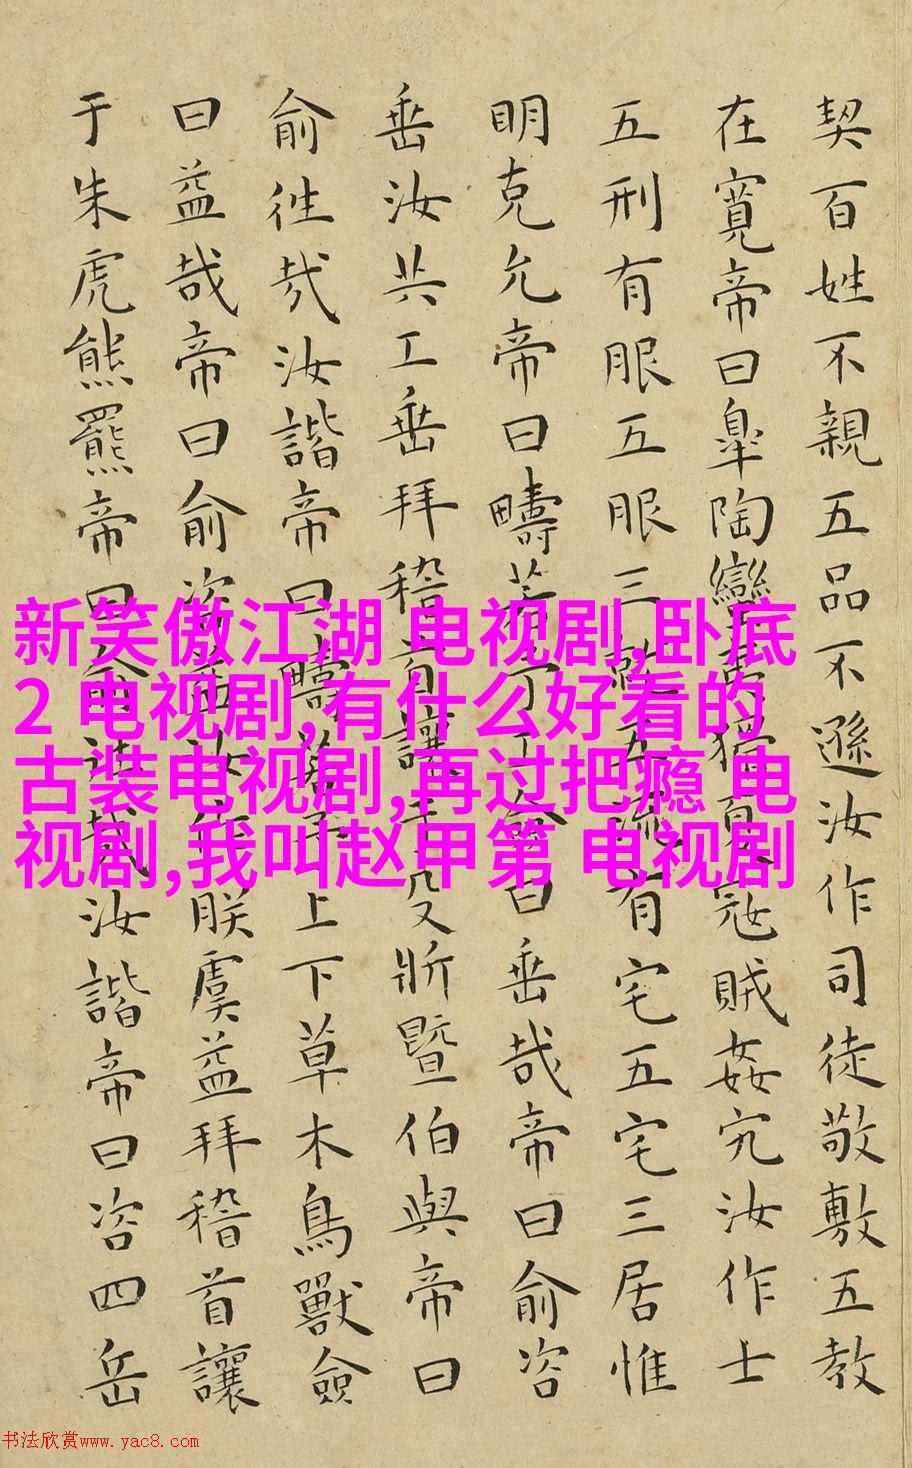 契百姓不親五品不遜汝作司徒敬敷五教
在寬帝曰皐陶蠻夷猾夏寇賊姦宄汝作士
五刑有服五服三就五流有宅五宅三居惟
明克允帝曰疇若予工僉曰垂哉帝曰俞咨
垂汝共工垂拜稽首讓于殳斨暨伯與帝曰
俞往哉汝諧帝曰疇若予上下草木鳥獸僉
曰益哉帝曰俞咨益汝作朕虞益拜稽首讓
于朱虎熊羆帝曰俞往哉汝諧帝曰咨四岳
新笑傲江湖 电视剧,卧底
2 电视剧,有什么好看的
古装电视剧,再过把瘾 电
视剧,我叫赵甲第 电视剧
书法欣赏www.yac8.com